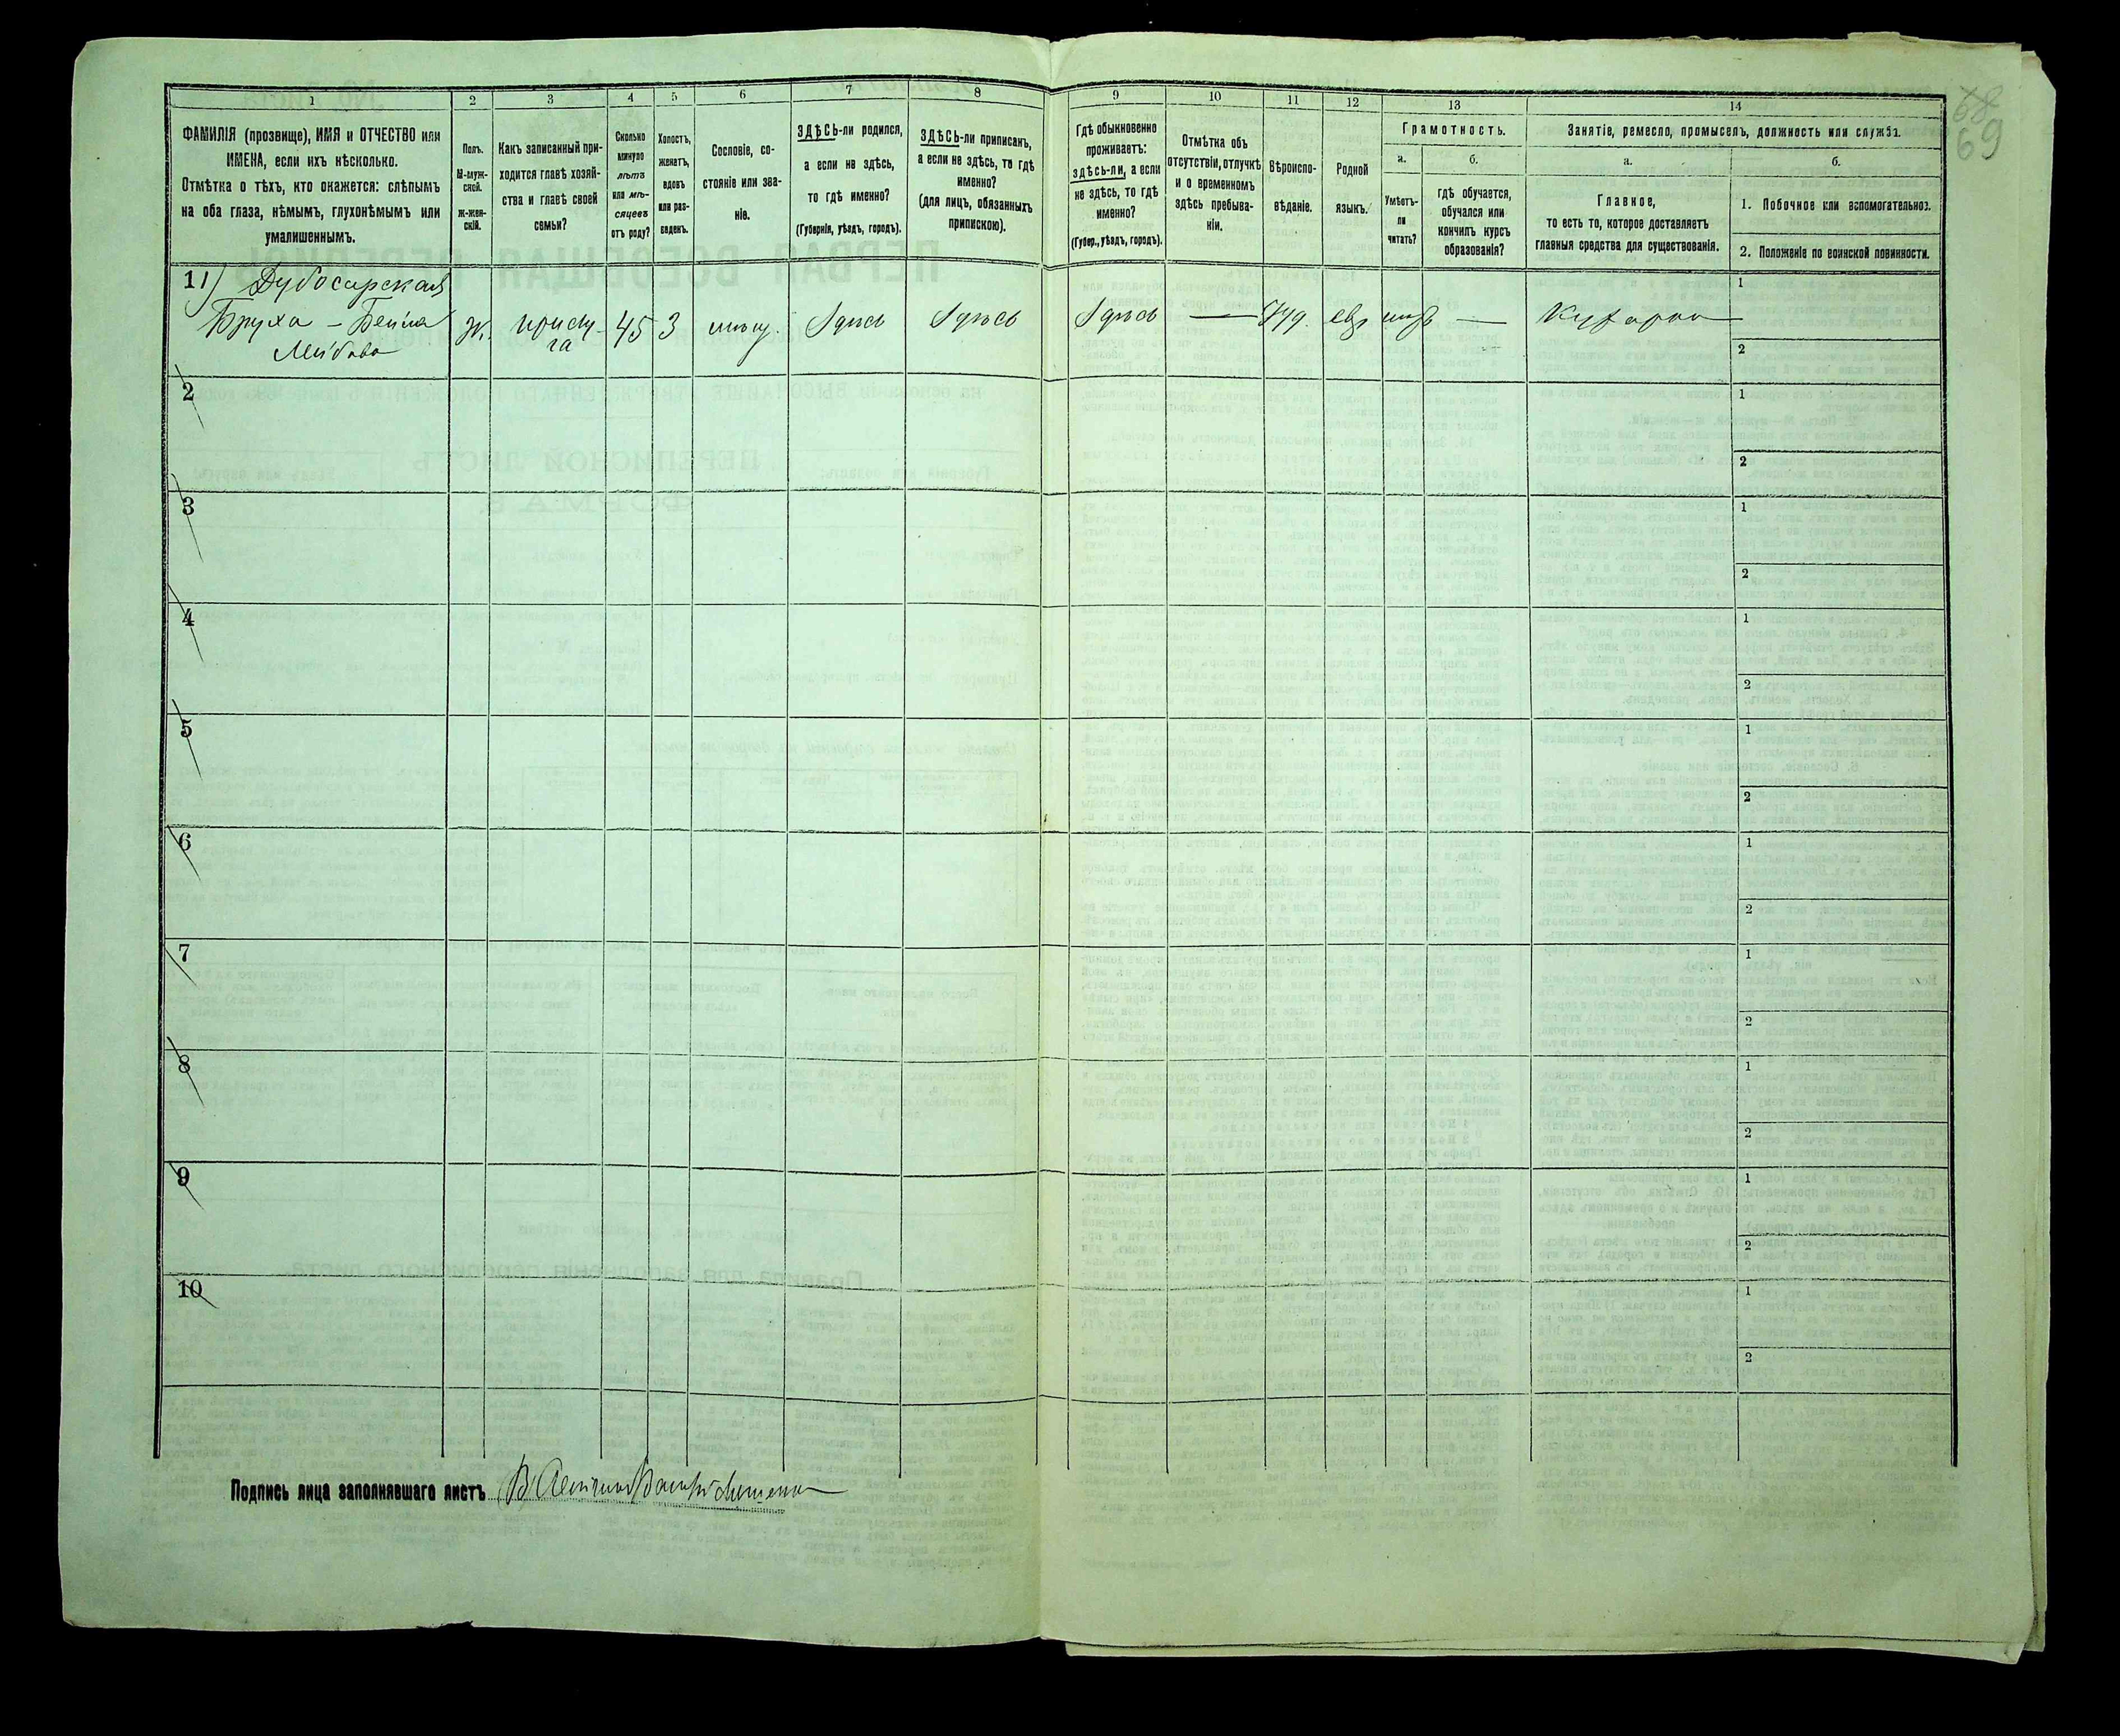 68
69
1
2
3
4
5
6
7
8
9
10
11
12
13
14
ФАМИЛІЯ (прозвище), ИМЯ и ОТЧЕСТВО или
ИМЕНА, если ихъ нѣсколько.
Отмѣтка о тѣхъ, кто окажется: слѣпымъ
на оба глаза, нѣмымъ, глухонѣмымъ или
умалишеннымъ.
Полъ.
М-муж-
ской.
ж-жен-
скій.
Какъ записанный при-
ходится главѣ хозяй-
ства и главѣ своей
семьи?
Сколько
минуло
лѣтъ
или мѣ-
сяцевъ
отъ роду?
Холостъ,
женатъ,
вдовъ
или раз-
веденъ.
Сословіе, со-
стояніе или зва-
ніе.
ЗДѢСЬ-ли родился,
а если не здѣсь,
то гдѣ именно?
(Губернія, уѣздъ, городъ).
ЗДѢСЬ-ли приписанъ,
а если не здѣсь, то гдѣ
именно?
(для лицъ, обязанныхъ
припискою).
Гдѣ обыкновенно
проживаетъ:
здѣсь-ли, а если
не здѣсь, то гдѣ
именно?
(Губер., уѣздъ, городъ).
Отмѣтка объ
отсутствіи, отлучкѣ
и о временномъ
здѣсь пребыва-
ніи.
Вѣроиспо-
вѣданіе.
Родной
языкъ.
Грамотность.
а.
Умѣетъ-
ли
читать?
б.
гдѣ обучается,
обучался или
кончилъ курсъ
образованія?
Занятіе, ремесло, промыселъ, должность или служба.
а.
Главное,
то есть то, которое доставляетъ
главныя средства для существованія.
б.
1. Побочное или вспомогательное.
2. Положеніе по воинской повинности.
1 1) Дубосарская
Бруха - Бейла
Лейбова
ж.
прислу-
га
45
3
мѣщ.
Здѣсь
Здѣсь
Здѣсь
—
Іуд.
евр
—
Кухарка
1
2
2
1
2
3
1
2
4
1
2
5
1
2
6
1
2
7
1
2
8
1
2
9
1
2
10
1
2
Подпись лица заполнявшаго листъ